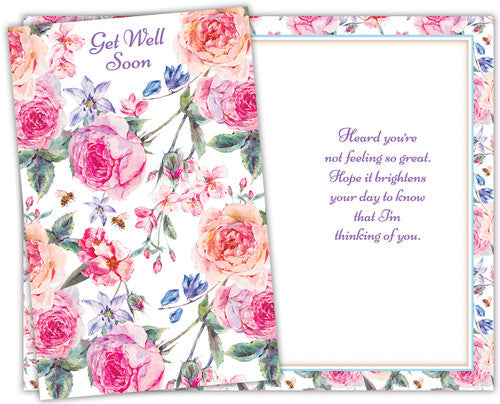 Get Well
Soon
Heard you're
not feeling so great.
Hope it brightens
your day to know
that I'm
thinking of you.